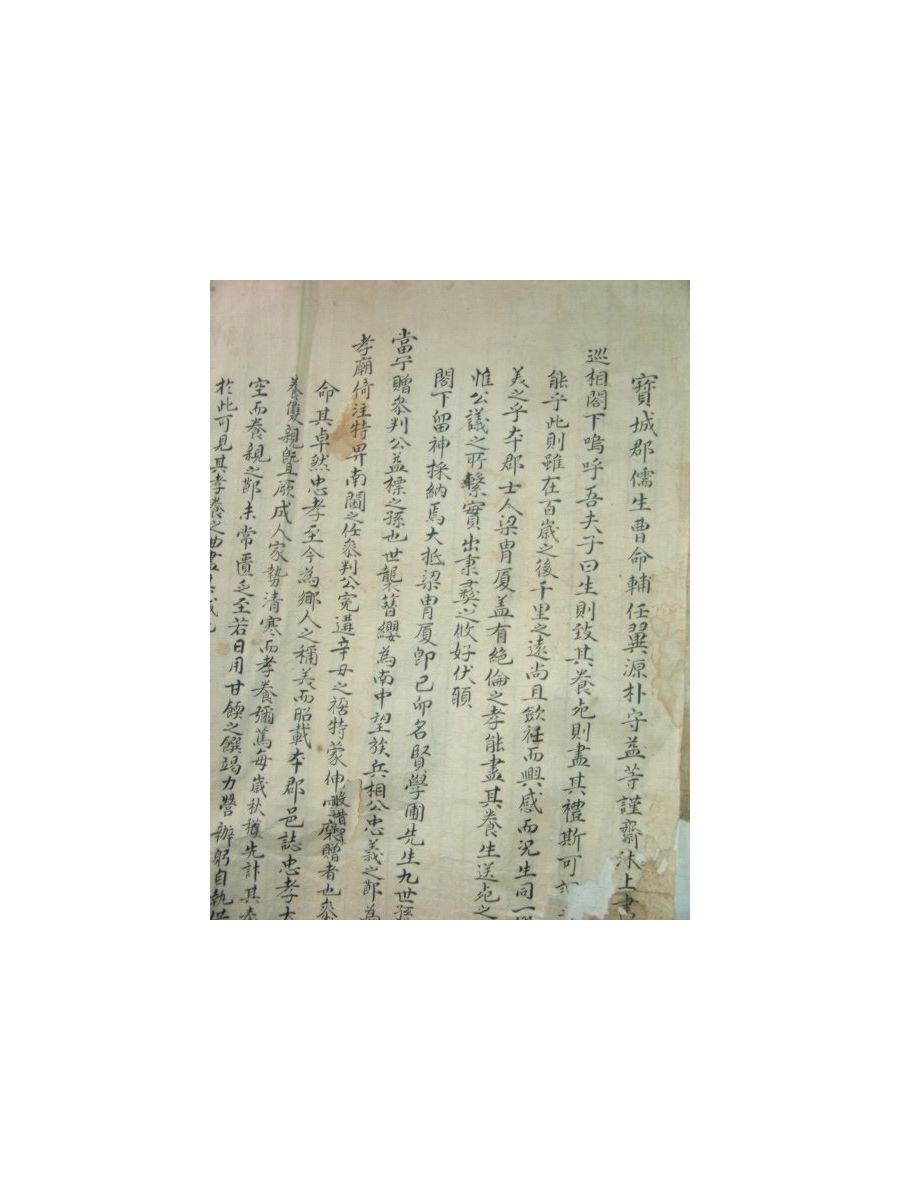 寶城郡儒生曺命輔任翼源朴守益等謹齋沐上書
巡相閤下嗚呼吾夫子曰生則致其養死則盡其禮斯可
能乎此則雖在百歲之後千里之遠尚且歛衽而興感而况生同一
美之乎本郡士人梁胄厦盖有絶倫之孝能盡其養生送死之
惟公議之所繫實出秉彛之攸好伏願
閤下留神採納焉大抵梁胄厦卽己卯名賢學圃先生九世孫
當宁贈叅判公益標之孫也世襲簪纓為南中望族兵相公忠義之節為
孝廟倚注特畀南閫之任叅判公寃遘辛丑之禍特蒙伸贈者也叅
命其卓然忠孝至今為鄉人之稱美而昭載本郡邑誌忠孝大
養雙親曁厥成人家勢清寒而孝養彌篤每歲秋穫先計其
空而養親之節未常匱乏至若日用甘餗之饌竭力營辦躬自執
於此可見其孝養之曲盡其誠